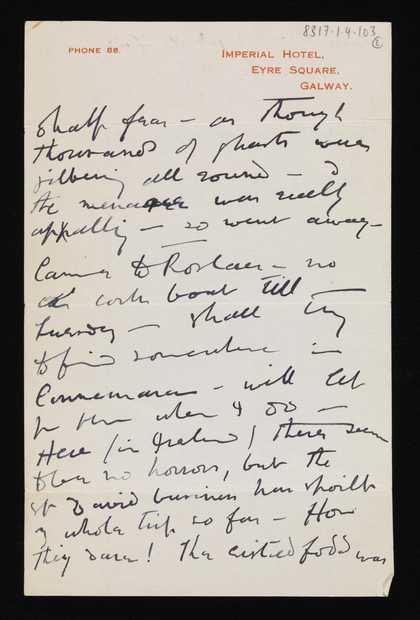 8317·1·4·103
PHONE 88.
IMPERIAL HOTEL,
EYRE SQUARE,
GALWAY.
half fear – as though
thousands of ghosts were
gibbering all round –
the menace was really
appalling – so went away –
Came to Rosslare – no
cork boat till
Tuesday – shall try
to find somewhere in
Connemara – will let
you know when I do –
Here (in Ireland) there seem
to be no horrors, but the
St David business has spoilt
my whole trip so far – How
they dare! The Eistedfodd was